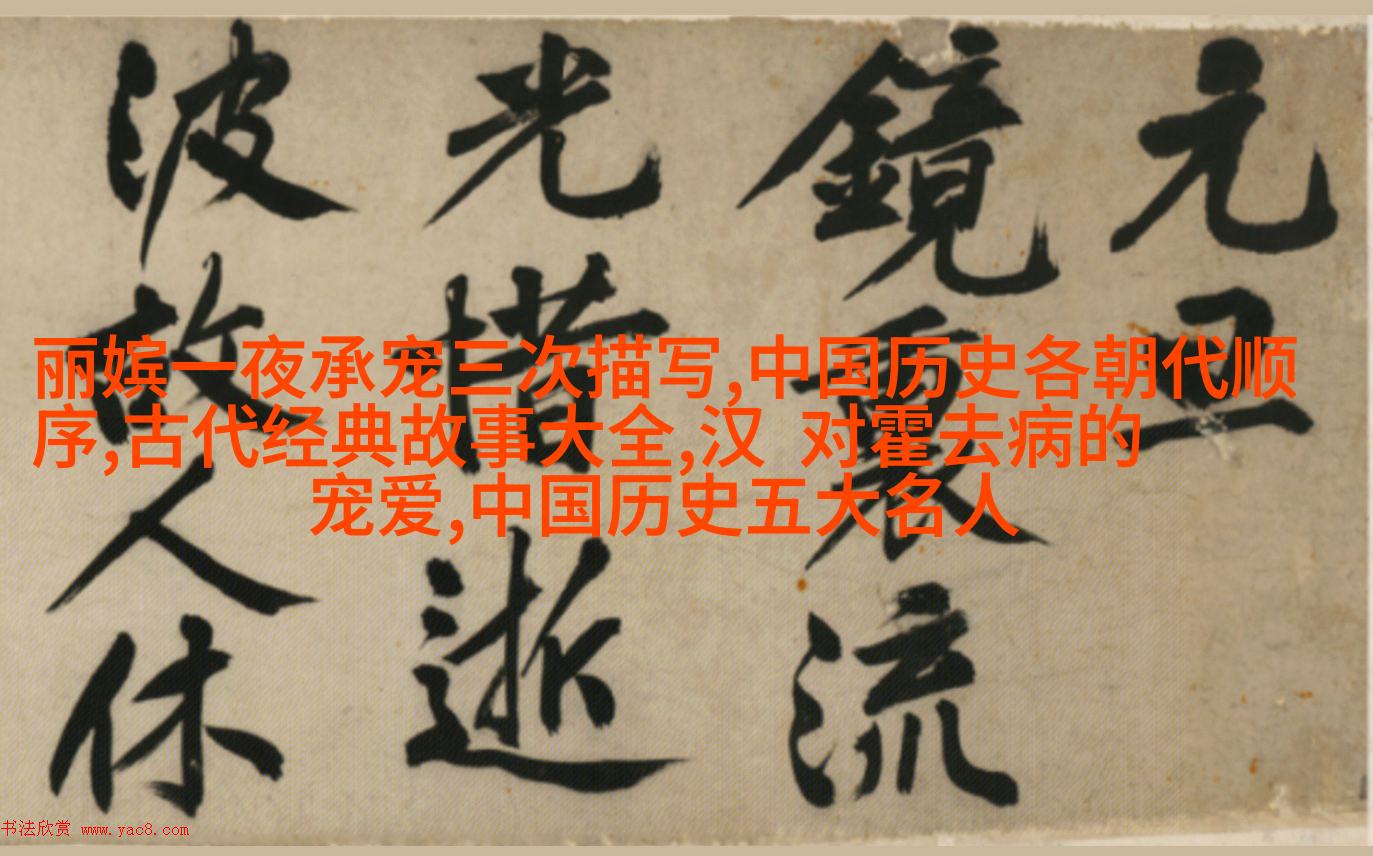 元旦
鏡裏流
光惜逝
波故人休
丽嫔一夜承宠三次描写,中国历史各朝代顺
序,古代经典故事大全,汉 对霍去病的
宠爱,中国历史五大名人
书法欣赏 www.yac8.com